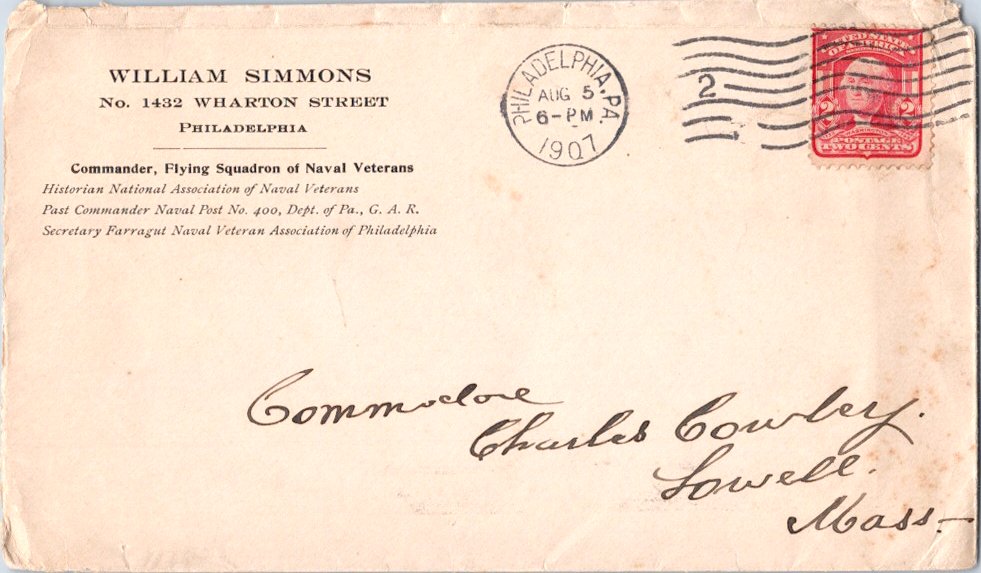 WILLIAM SIMMONS
No. 1432 WHARTON STREET
PHILADELPHIA
Commander, Flying Squadron of Naval Veterans
Historian National Association of Naval Veterans
Past Commander Naval Post No. 400, Dept. of Pa., G. A. R.
Secretary Farragut Naval Veteran Association of Philadelphia
PHILADELPHIA, PA.
AUG 5
6-PM
1907
2
UNITED STATES
OF AMERICA
2 2
WASHINGTON
POSTAGE
TWO CENTS
Commodore
Charles Cowley.
Lowell.
Mass-